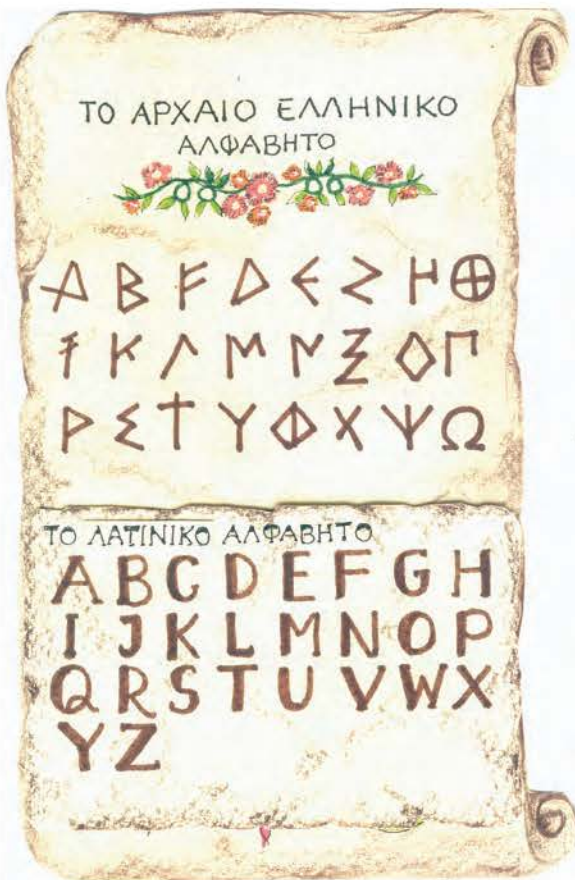 ΤΟ ΑΡΧΑΙΟ ΕΛΛΗΝΙΚΟ
ΑΛΦΑΒΗΤΟ
Α Β F Δ Ε Ζ Η Θ
Ϝ Κ Λ Μ Ν Ξ Ο Π
Ρ Σ Τ Υ Φ Χ Ψ Ω
ΤΟ ΛΑΤΙΝΙΚΟ ΑΛΦΑΒΗΤΟ
A B C D E F G H
I J K L M N O P
Q R S T U V W X
Y Z